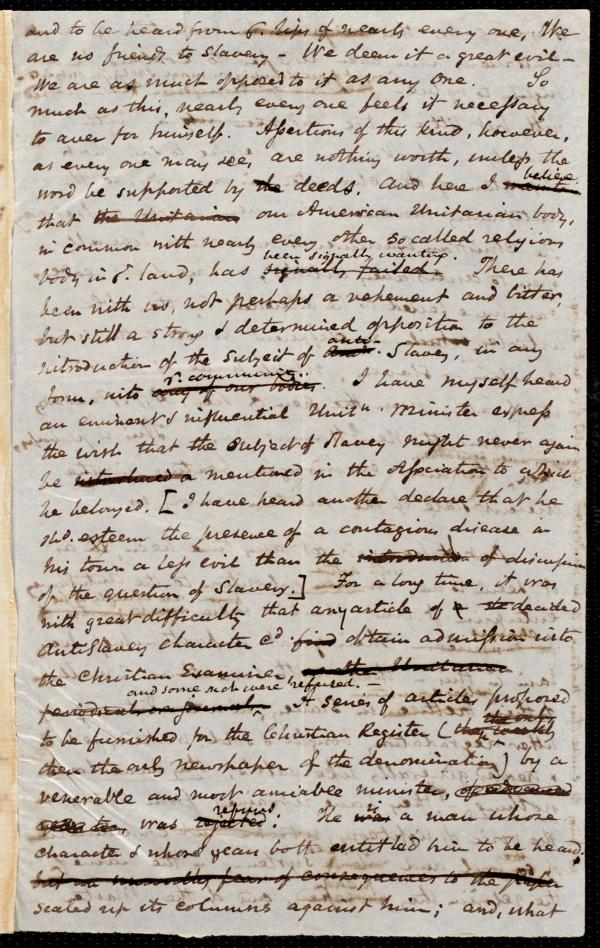 and to be heard from ye. lips of nearly every one, We
are no friends to Slavery – We deem it a great evil –
We are as much opposed to it as any one. So
much as this, nearly every one feels it necessary
to aver for himself. Assertions of this kind, however,
as every one may see, are nothing worth, unless the
word be supported by the deeds. And here I believe
that the Unitarian our American Unitarian body,
in common with nearly every other so called religious
been signally wanting.
body in ye. land, has signally failed. There has
been with us, not perhaps a vehement and bitter,
but still a strong & determined opposition to the
introduction of the Subject of Anti-Slavery, in any
ye. communion..
form, into any of our bodies. I have myself heard
an eminent & influential Unitn. minister express
the wish that the Subject of Slavery might never again
be introduced a mentioned in the Association to which
he belonged. [I have heard another declare that he
shd. esteem the presence of a contagious disease in
his town a less evil than the introduction of discussion
of the question of Slavery.] For a long time, it was
with great difficulty that any article of a decided
AntiSlavery character cd. find obtain admission into
the Christian Examiner, or other Unitarian
and some such were refused. –
periodicals or journals. A series of articles proposed
the only
to be furnished for the Christian Register (the weekly
then the only newspaper of the denomination) by a
venerable and most amiable minister, of advanced
refused
years too, was rejected: He is was a man whose
character & whose years both entitled him to be heard;
but an unworthy fear of consequences to the paper
sealed up its columns against him; and, what